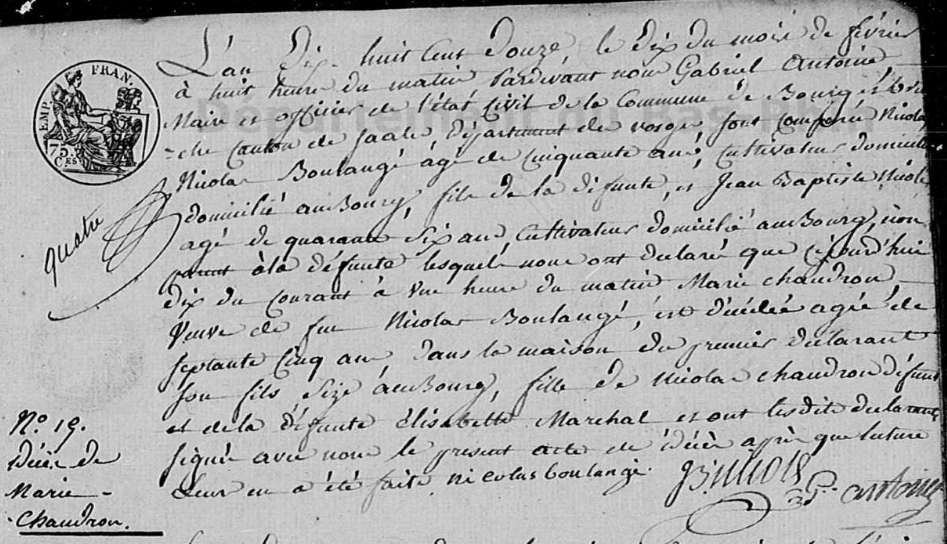 L'an dix huit Cent douze, le dix du mois de fevrier
à huit heure du matin Pardevant nous Gabriel Antoine
Maire et officier de l'état Civil de la Commune de Bourg et Bru
che Canton de Saales Département des vosges, sont Comparu Nicolas
Nicolas Boulangé âgé de Cinquante ans, Cultivateur domicilié
domicilié au Bourg, fils de la défunte, et Jean Baptiste Nicole
agé de quarante Six ans Cultivateur domicilié au Bourg, non
parent à la défunte lesquels nous ont declaré que Cejourd'hui
dix du Courant à une heure du matin Marie chaudron
Veuve de feu Nicolas Boulangé, est décédée agée de
Septante Cinq ans dans la maison du premier déclarant
son fils Size au Bourg, fille de Nicolas chaudron défunt
et de la défunte Elisabette Marchal et ont lesdits declarants
signée avec nous le present acte de décée après que lecture
Leur en a été faite. nicolas boulangé. JBNicole G. antoine
TIMP. FRAN.
75
CES
quatre
No. 19.
décée de
Marie
Chaudron.
Département du Bas-Rhin